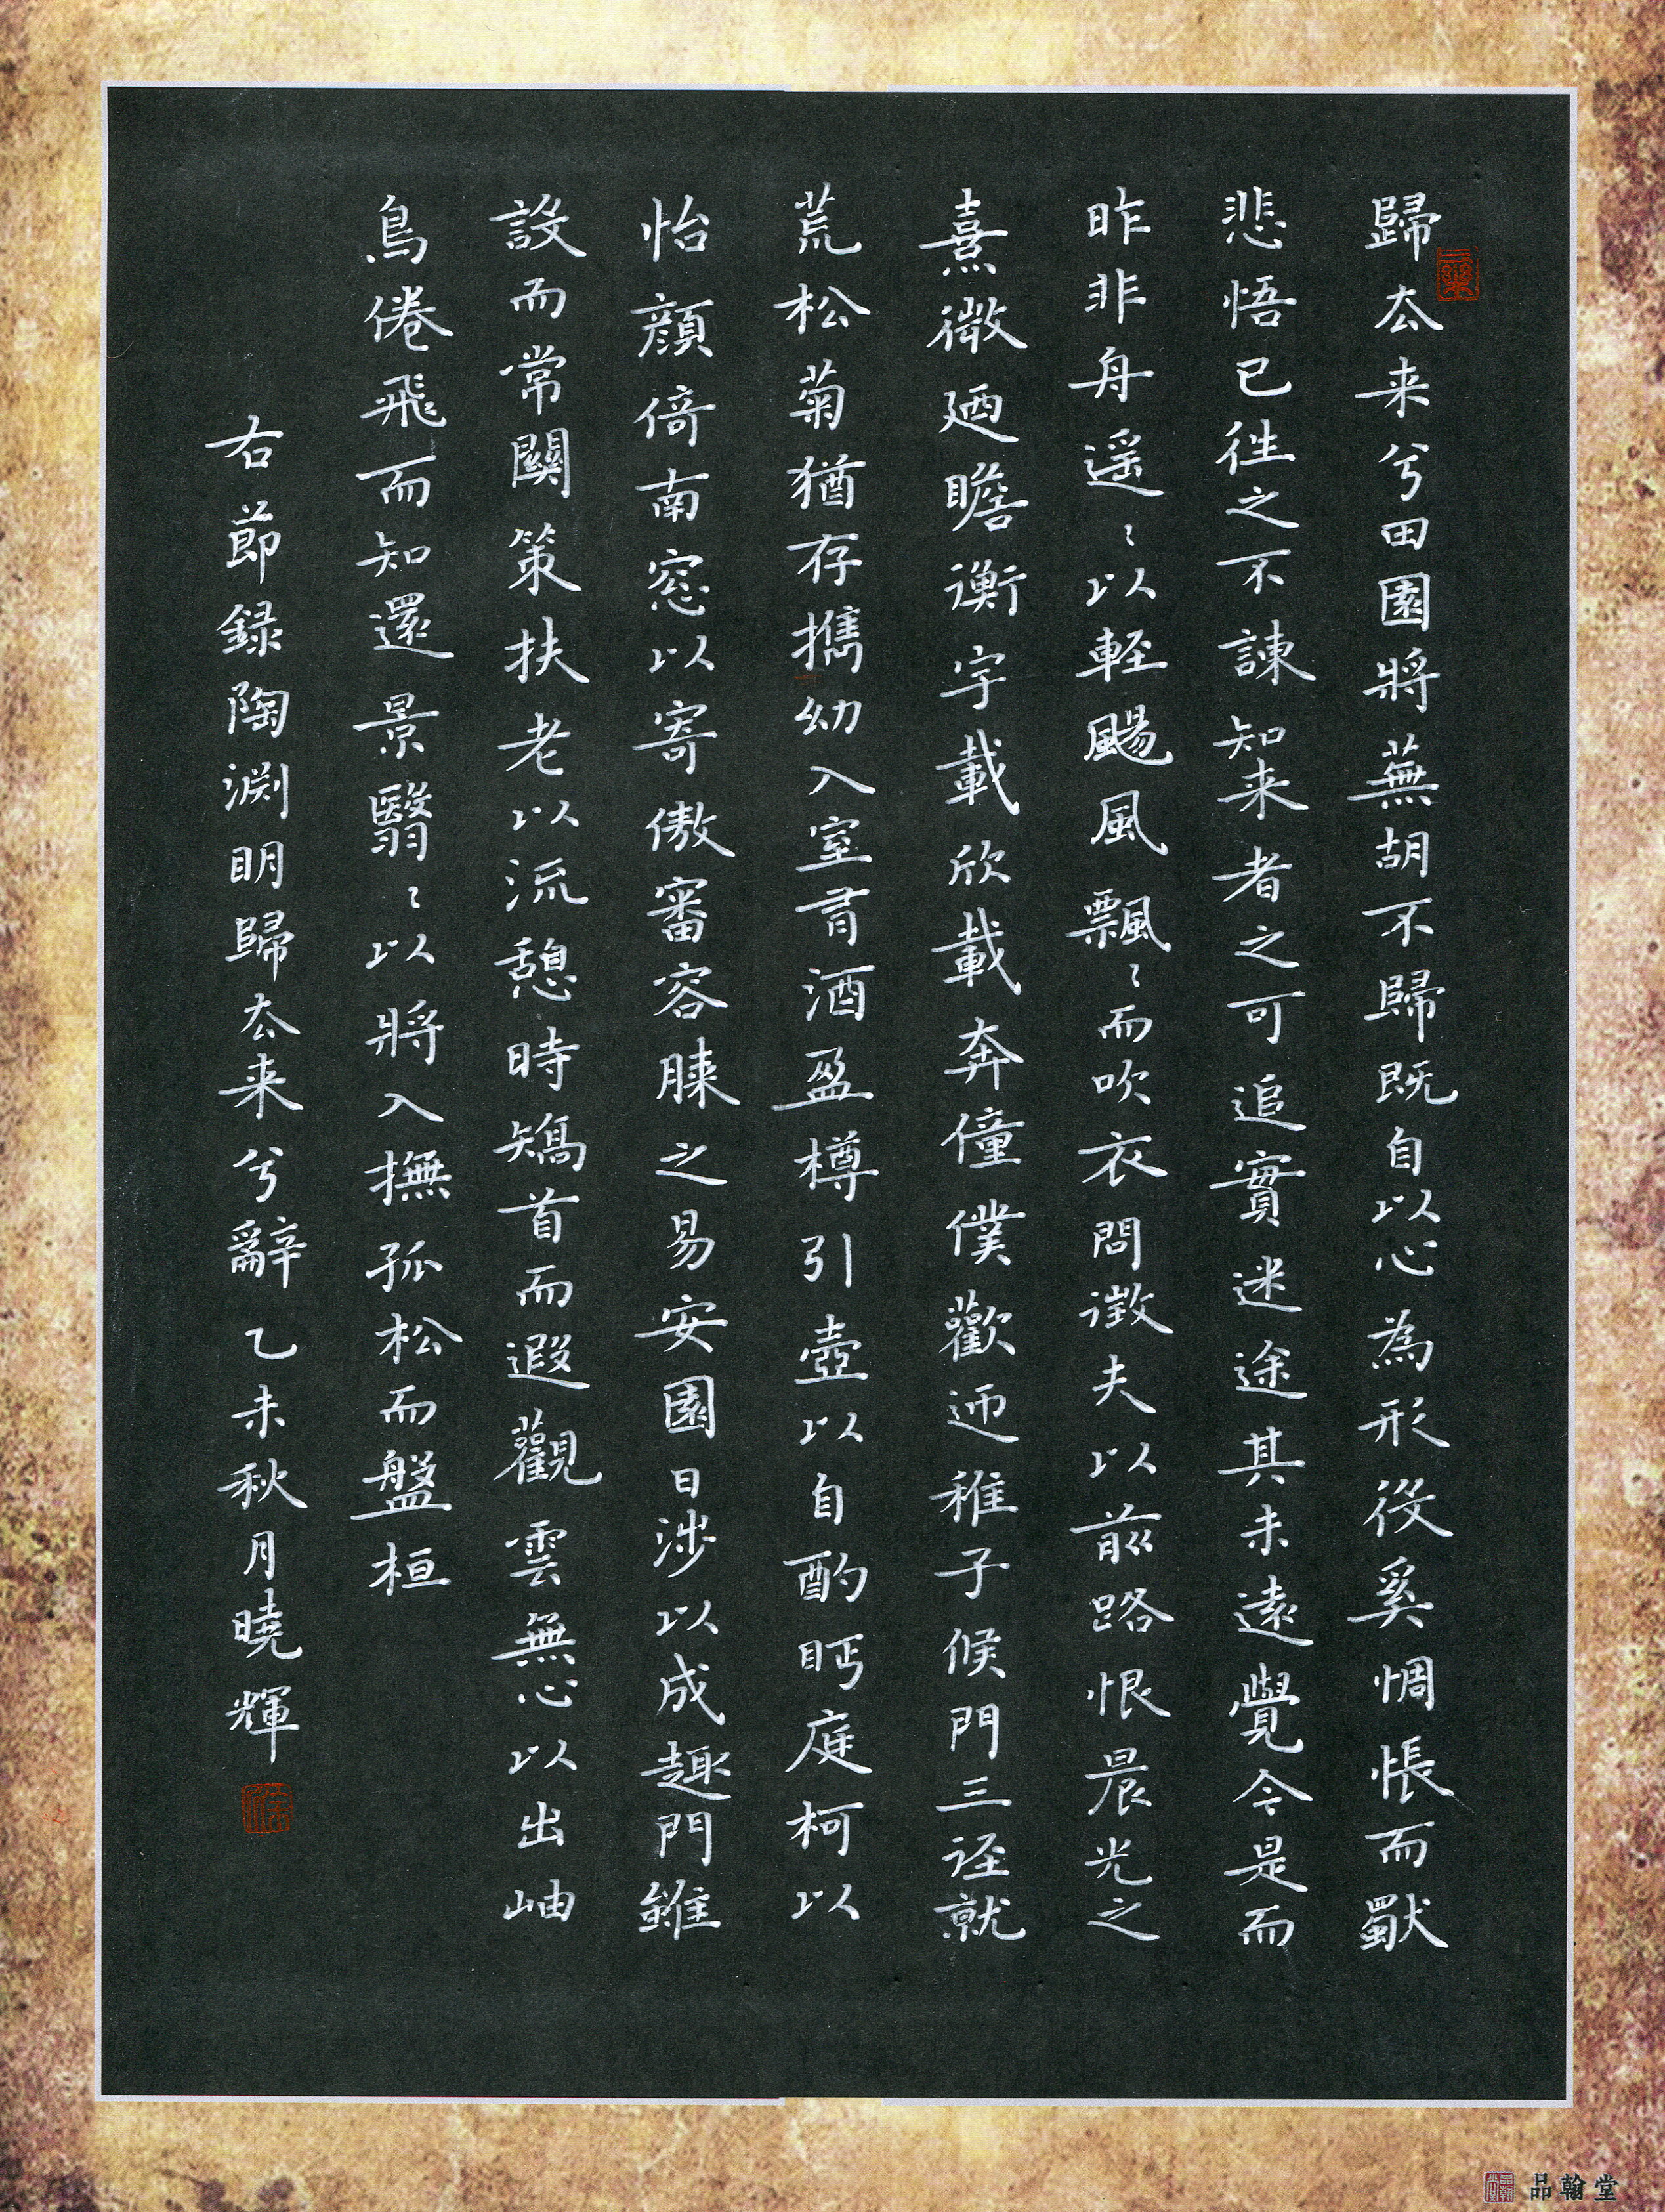 歸去来兮田園將蕪胡不歸既自以心為形役奚惆悵而獸
悲悟已往之不諫知来者之可追實迷途其未遠覺今是而
昨非舟遥〻以輕颺風飄〻而吹衣問徵夫以前路恨晨光之
熹微廼瞻衡宇載欣載奔僮僕歡迊稚子候門三迳就
荒松菊猶存攜幼入室有酒盈樽引壺以自酌眄庭柯以
怡顔倚南窓以寄傲審容膝之易安園日涉以成趣門雖
設而常關策扶老以流憩時矯首而遐觀雲無心以出岫
鳥倦飛而知還景翳〻以將入撫孤松而盤桓
右節録陶渊明歸去来兮辭乙未秋月曉輝
品翰堂